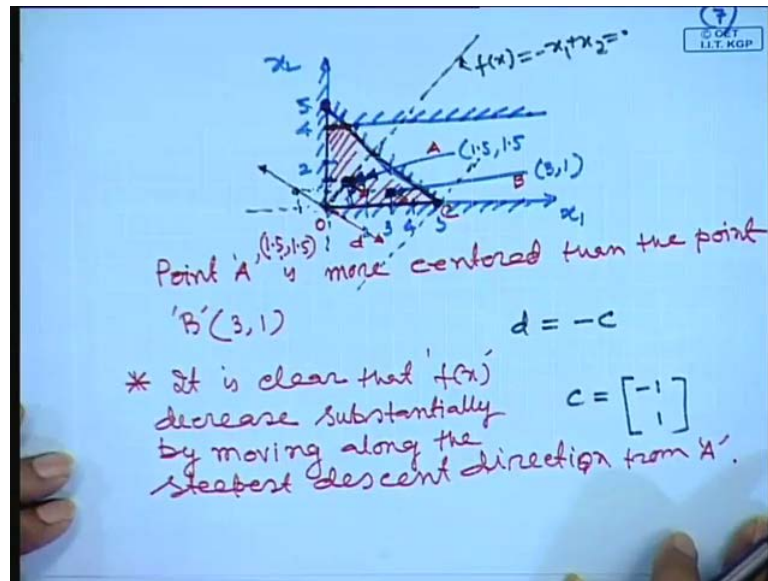 7
© CET
I.I.T. KGP
x₂
f(x) = -x₁+x₂=0
5
4
A
(1.5, 1.5
2
(3,1)
B
-1
0
d
2
3
4
5
C
x₁
(1.5, 1.5)
Point 'A' is more centored than the point
'B' (3, 1)
d = -c
* It is clear that 'f(x)'
decrease substantially
c = [-1
1]
by moving along the
steepest descent direction from 'A'.